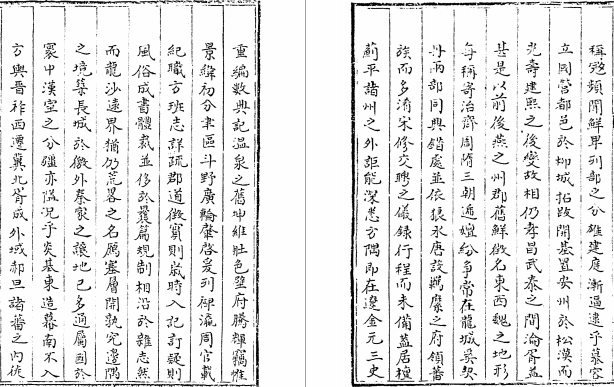 重編數典記溫泉之舊冲維壯色蓥府騰輝竊惟
景緯初分聿區斗野廣輪肇啓爰列神瀛周官載
紀職方班志詳疏郡道徵實則歲時入記訂疑則
風俗成書體裁並侈於叢篇規制相沿於雜志然
而龍沙遠界猶仍荒畧之名鴈塞層關孰究邊隅
之境築長城於徼外秦家之讓地已多通屬國於
寰中漢室之分疆亦隘況乎炎基東造幕南不入
方輿晉祚西遷冀北胥成外域郝旦諸蕃之內徙
稱頻聞鮮卑列部之分雄建庭漸逼逮乎慕容
立國營都邑於柳城拓跋開基置安州於松漠而
光壽建熙之後變故相仍孝昌武泰之間淪胥益
甚是以前後燕之州郡舊鮮徵名東西魏之地形
每稱寄治齊周隋三朝遞嬗紛爭常在龍城奚契
丹兩部同興錯處並依狼水唐設羈縻之府領蕃
族而多淆宋修交聘之儀錄行程而未備蓋居檀
薊平諸州之外詎能深悉方隅即在遼金元三史